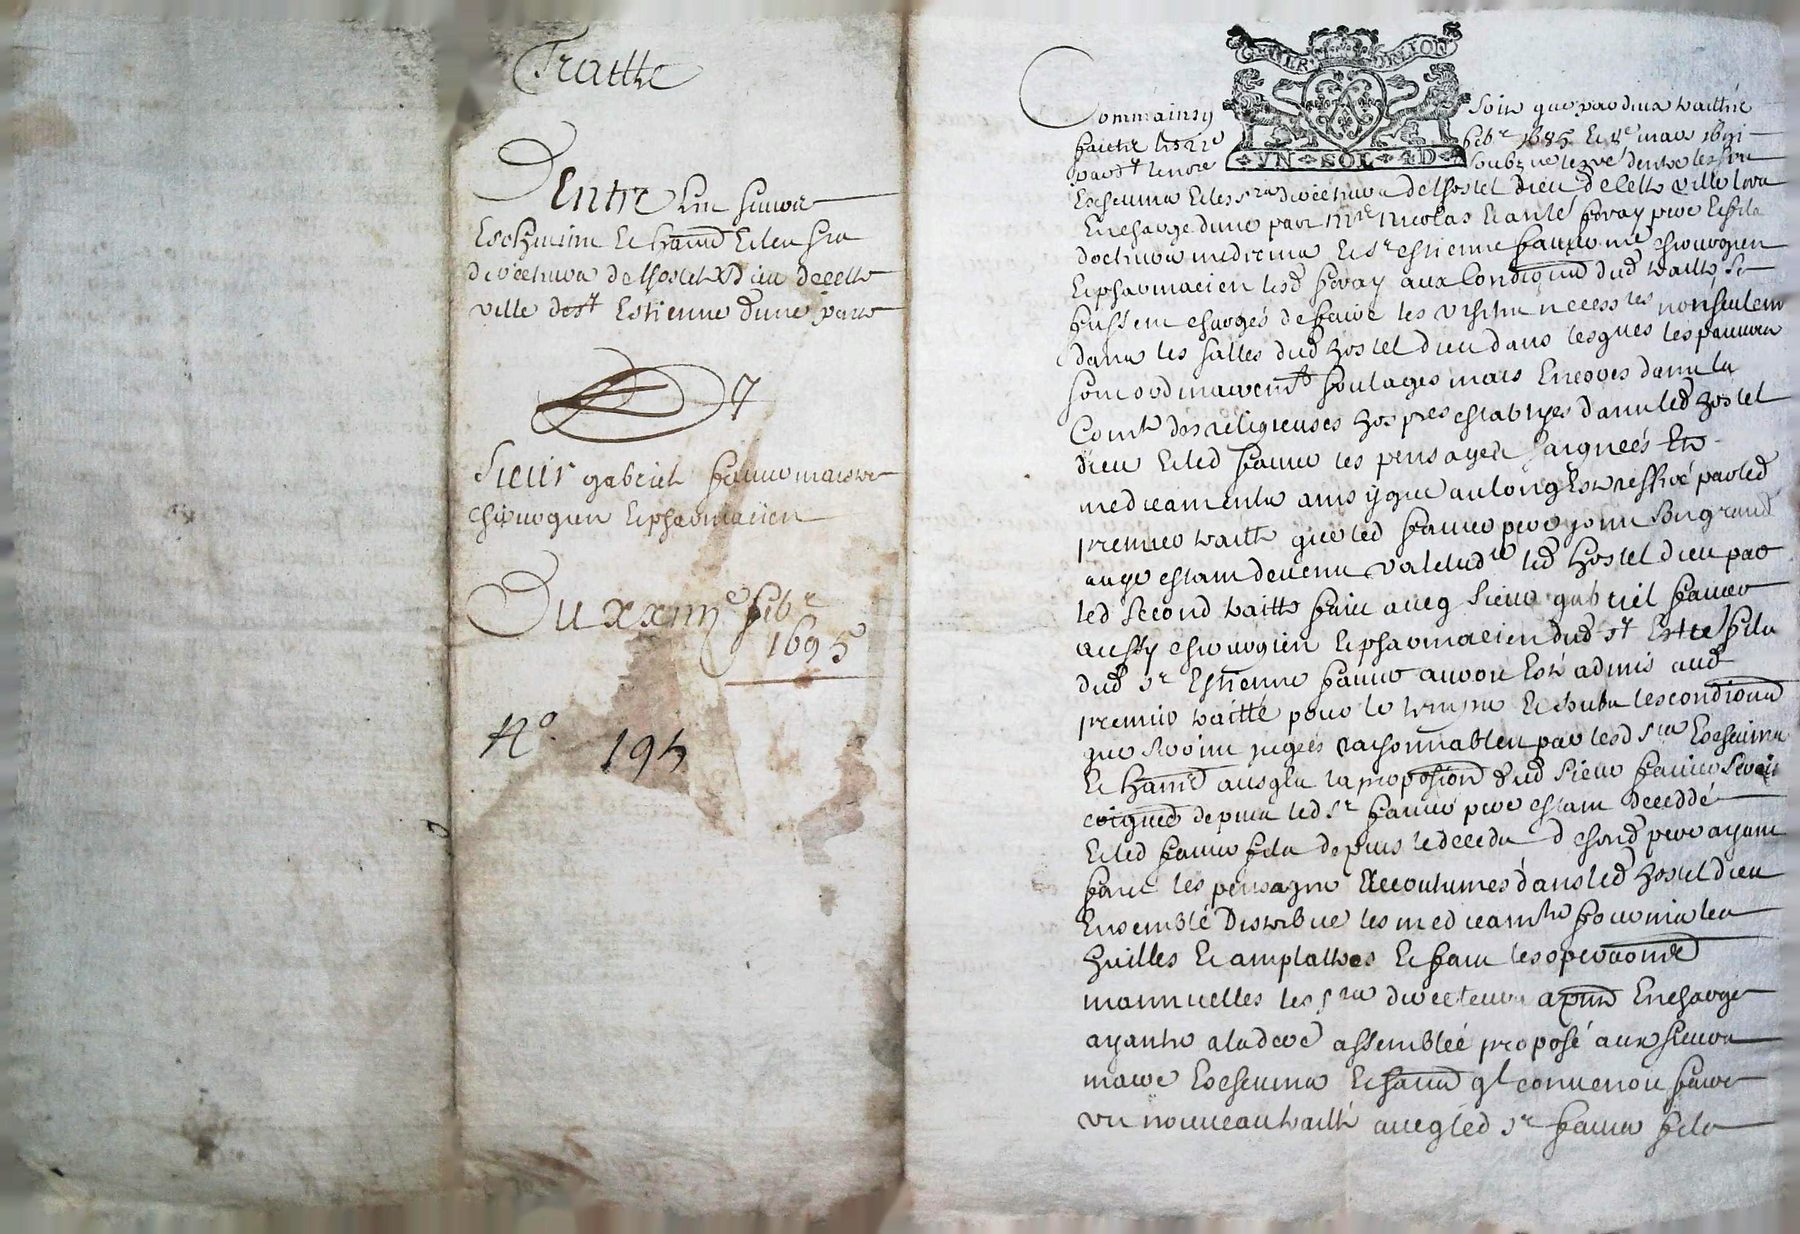 Traitte
Entre les sieurs
Eschevins Et habnts Et les srs
directeurs de lhostel dieu de cette
ville de st Estienne dune part
Et
Sieur gabriel faure maistre
chirurgien Et pharmacien
Du xxiiije febr
1695
No 195
Comme ainsy soit que par deux traittés
GENER LYON
VN · SOL · 4D
febr 1685 Et mars 1691
Eschevins Et les srs directeurs de lhostel dieu de cette ville lors
En charge dune part Mre Nicolas Et anté fauray pere Et fils
docteurs medecins Et sr estienne faure me chirurgien
Et pharmacien lesd fauray aux Conditions dud traitté se
fussent chargés de faire les visites necess res non seulemt
dans les salles dud hostel dieu dans lesquels les pauvres
sont ordinairemt soulagés mais Encores dans la
Comte des religieuses hos res establyes dans led hostel
dieu Et led faure les pensages saignées Et
medicaments ainsy que au long Est reffere par led
premier traitté que led faure pere a son grand
aage estant devenu valetudre led hostel dieu par
led second traitté fait avecq sieur gabriel faure
aussy chirurgien Et pharmacien dud st Este fils
dud sr Estienne faure auroit Esté admis aud
premier traitté pour le temps Et soubs les conditions
que furent jugées raisonnables par lesd srs Eschevins
Et habnts la proposition dud sieur faure
depuis led sr faure pere estant deceddé
Et led faure fils depuis le decedz desond pere ayant
fait les pensages accoutumés dans led hostel dieu
Ensemble distribué les medicamts
huilles Et amplattres Et fait les operaons
mannuelles les srs directeurs apnt En charge
ayants a la dere assemblée proposé aux sieurs
maire Eschevins Et habnts ql convenoit faire
un nouveau traitté avecq led sr faure fils